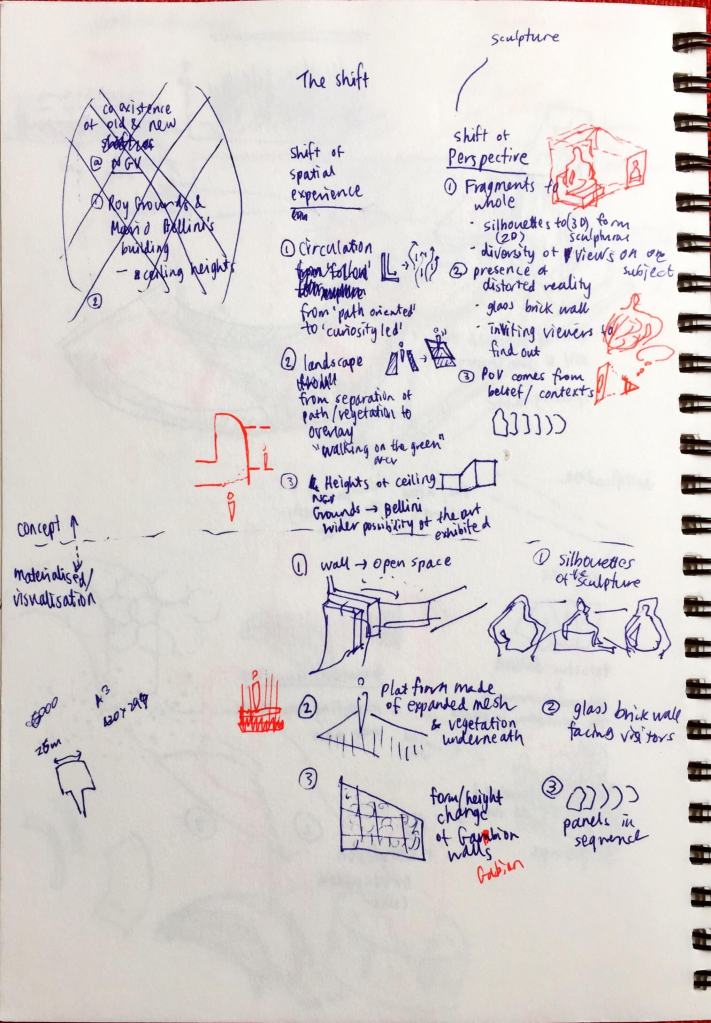 sculpture
The shift
co existence
of old & new
@ NGV
① Roy Grounds &
Mario Bellini's
building
- ceiling heights
②
shift of
spatial
experience
① Circulation
from 'path oriented'
to 'curiosity led'
② landscape
from separation of
path/vegetation to
overlay
"walking on the green"
③ Heights of ceiling
NGV
Grounds → Bellini
wider possibility of the art
exhibited
shift of
Perspective
① Fragments to
whole
· silhouettes to (3D) form
(2D) sculptures
· diversity of views on one
subject
② presence of
distorted reality
· glass brick wall
· inviting viewers to
find out
③ POV comes from
belief/contexts
concept ↑
materialised/
visualisation
① wall → open space
② Platform made
of expanded mesh
& vegetation
underneath
③ form/height
change
of Gambion
walls
Gabian
① silhouettes
of the sculpture
② glass brick wall
facing visitors
③ panels in
sequence
A3
420 x 297